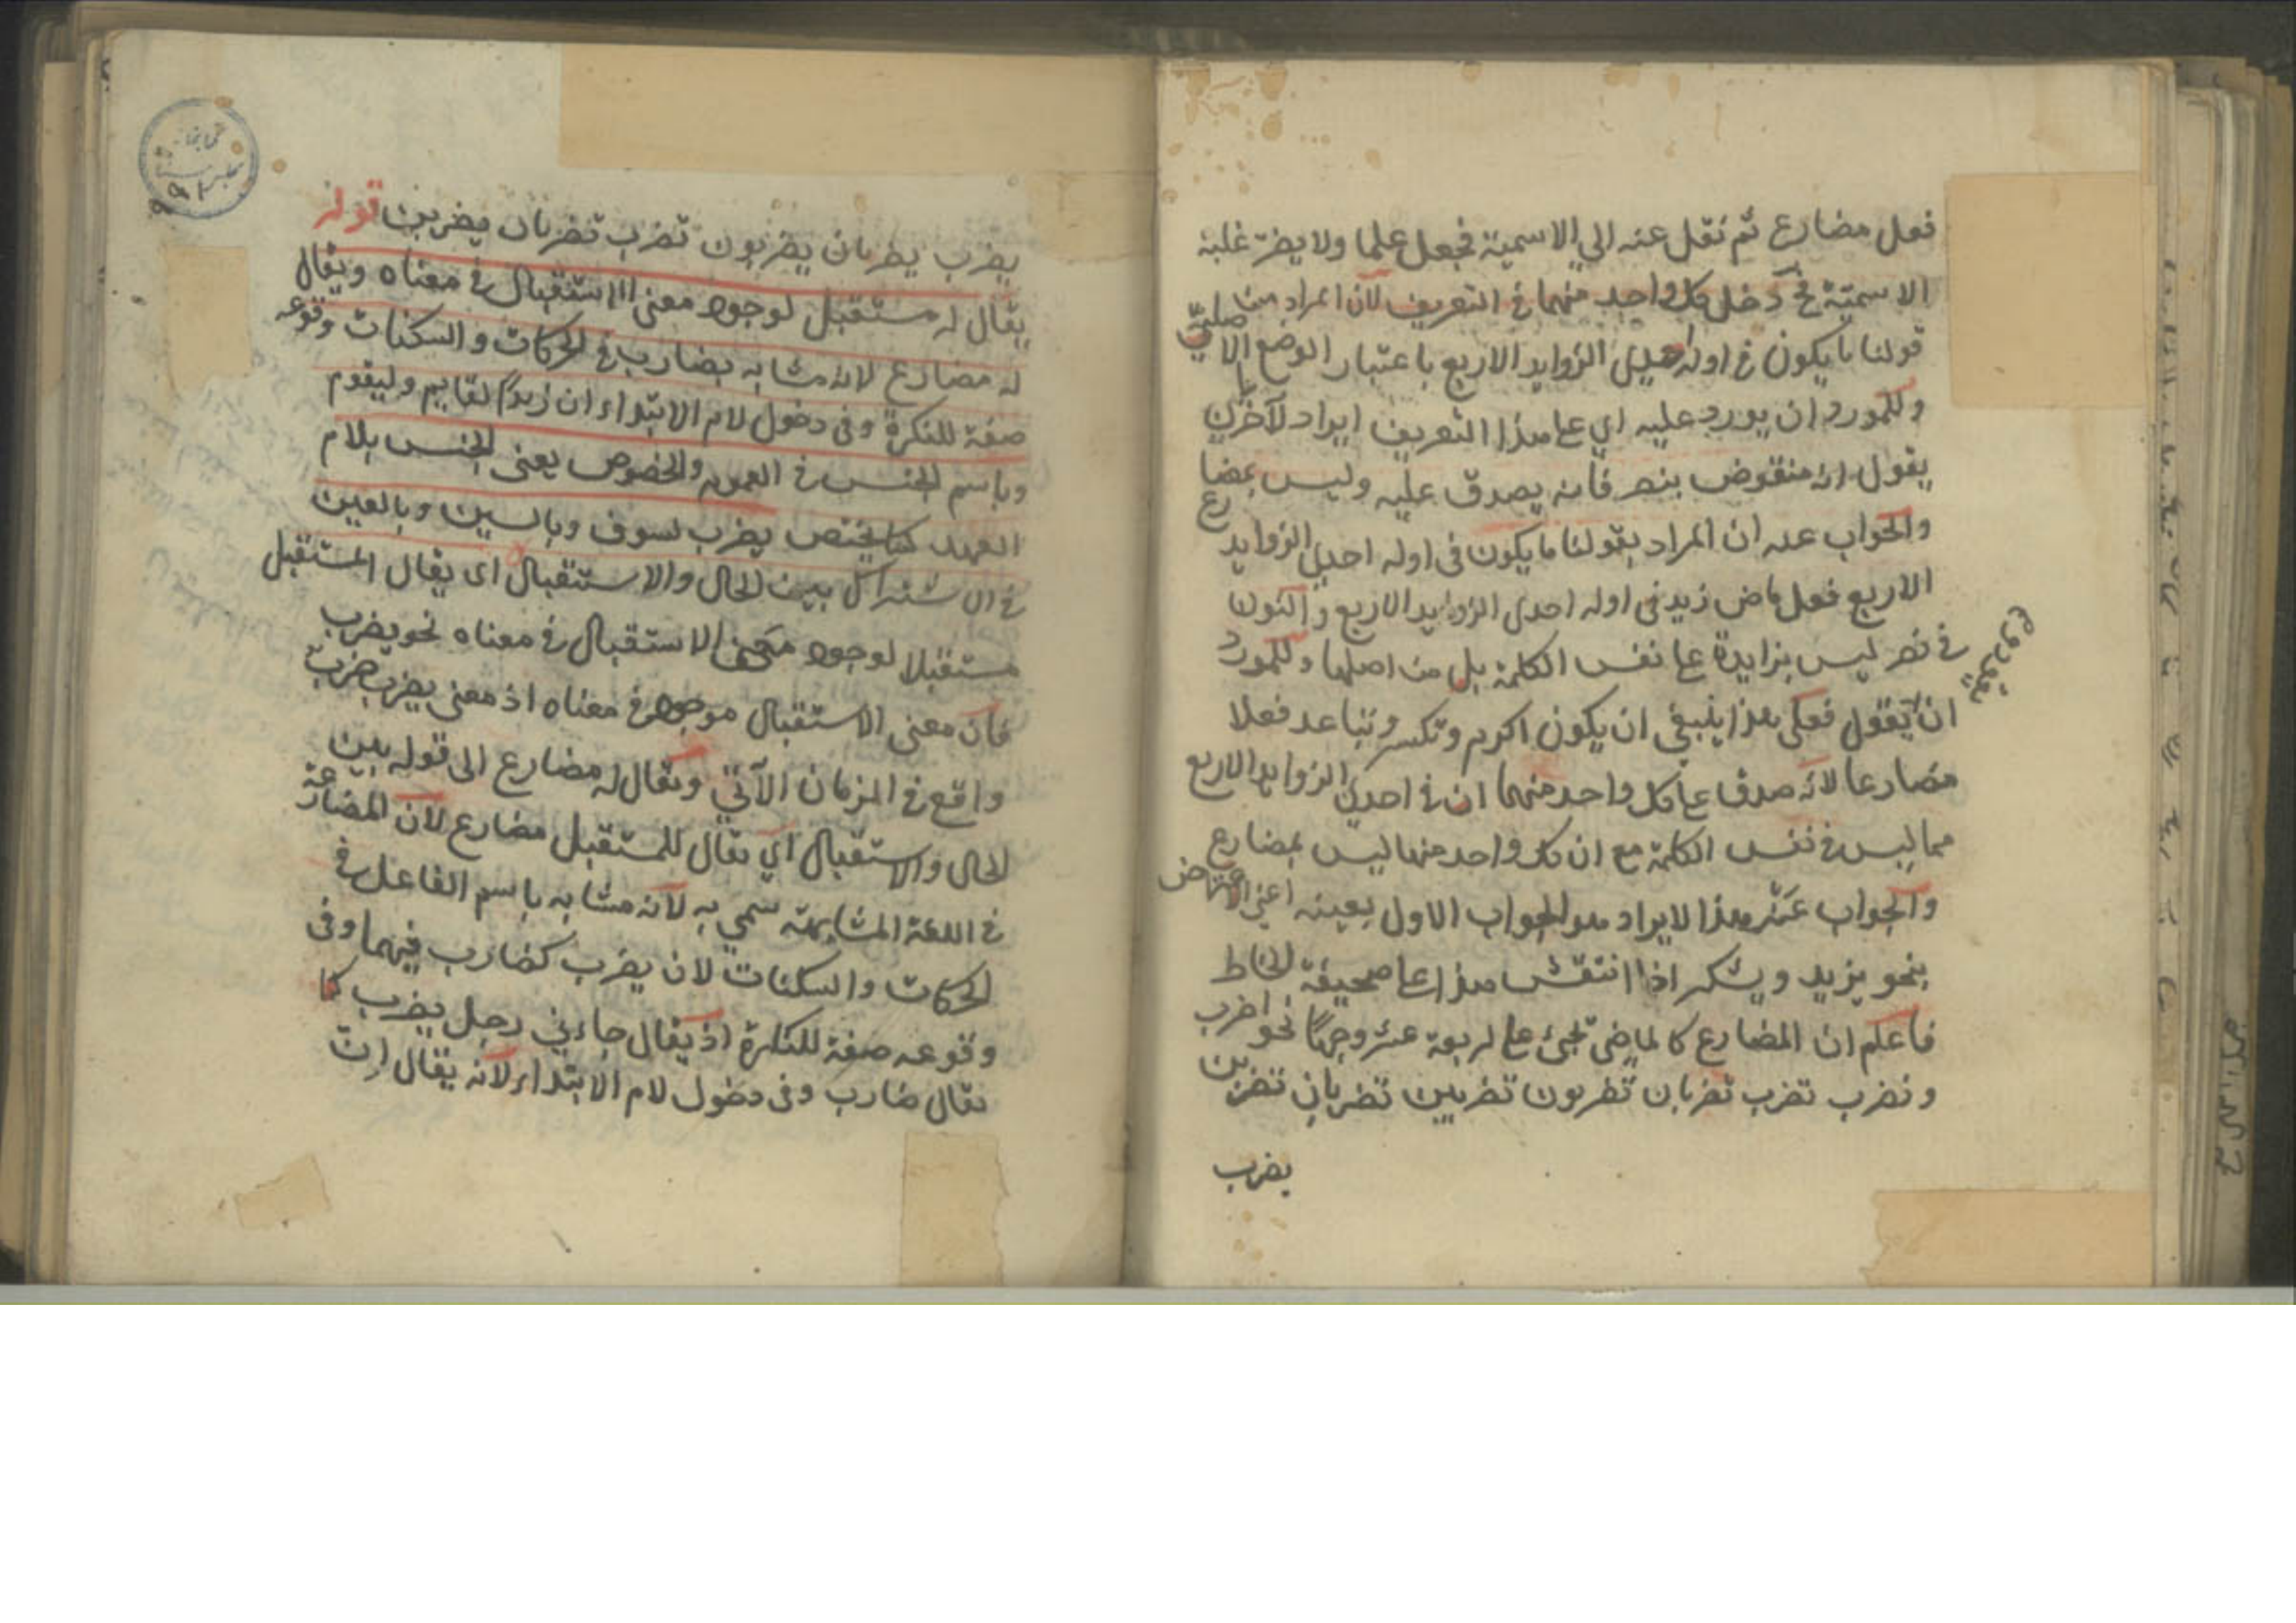 فعل مضارع ثم نقل عنه الي الاسمية فجعل علما ولا يضر غلبة
الاسمية فح دخل كل واحد منهما في التعريف لان المراد من
قولنا ما يكون في اوله احدى الزوايد الاربع باعتبار الوضع الاصلي
وللمورد ان يورد عليه اي على هذا التعريف ايراد الآخر بان
يقول انه منقوض بنصر فانه يصدق عليه وليس بمضارع
والجواب عنه ان المراد بقولنا ما يكون في اوله احدى الزوايد
الاربع فعل ماض زيد في اوله احدى الزوايد الاربع والنون
في نصر ليس بزايدة على نفس الكلمة بل من اصلها وللمورد
ان يقول فعلى هذا ينبغي ان يكون اكرم وتكسر وتباعد فعلا
مضارعا لانه صدق على كل واحد منهما ان في احدى الزوايد الاربع
مما ليس في نفس الكلمة مع ان كل واحد منها ليس بمضارع
والجواب عن هذا الايراد هو الجواب الاول بعينه اعني
بنحو يزيد ويشكر اذا انتقش هذا على صحيفة الخاطر
فاعلم ان المضارع كالماضي تجئ على اربعة عشر وجها نحو اضرب
ونضرب تضرب تضربان تضربون تضربين تضربان تضربن
يضرب
يضرب يضربان يضربون تضرب تضربان يضربن قوله
يقال له مستقبل لوجود معنى الاستقبال في معناه ويقال
له مضارع لانه مشابه بضارب في الحركات والسكنات وقوعه
صفة للنكرة وفي دخول لام الابتداء ان زيدا لقايم وليقوم
وباسم الجنس في العموم والخصوص يعنى الجنس بلام
العهد كما يختص يضرب بسوف وبالسين وبالعين
في الاشتراك بين الحال والاستقبال اى يقال المستقبل
مستقبلا لوجود معنى الاستقبال في معناه نحو يضرب
فان معنى الاستقبال موجود في معناه اذ معنى يضرب ضرب
واقع في الزمان الآتي ويقال له مضارع الى قوله بين
الحال والاستقبال اي يقال للمستقبل مضارع لان المضارعة
في اللغة المشابهة سمي به لانه مشابه باسم الفاعل في
الحركات والسكنات لان يضرب كضارب فيهما وفى
وقوعه صفة للنكرة اذ يقال جاءني رجل يضرب كما
يقال ضارب وفى دخول لام الابتداء لانه يقال ان